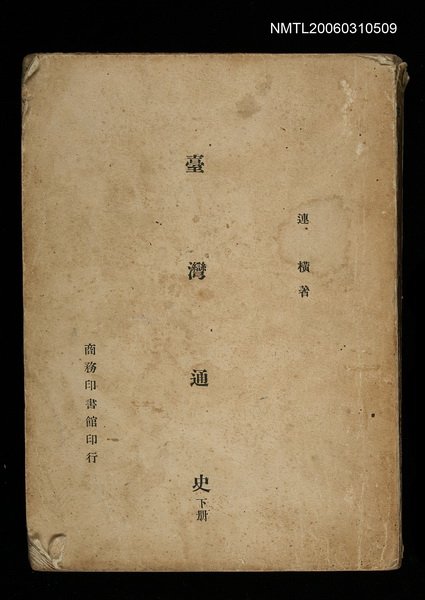 NMTL20060310509
連橫著
臺灣通史
下册
商務印書館印行